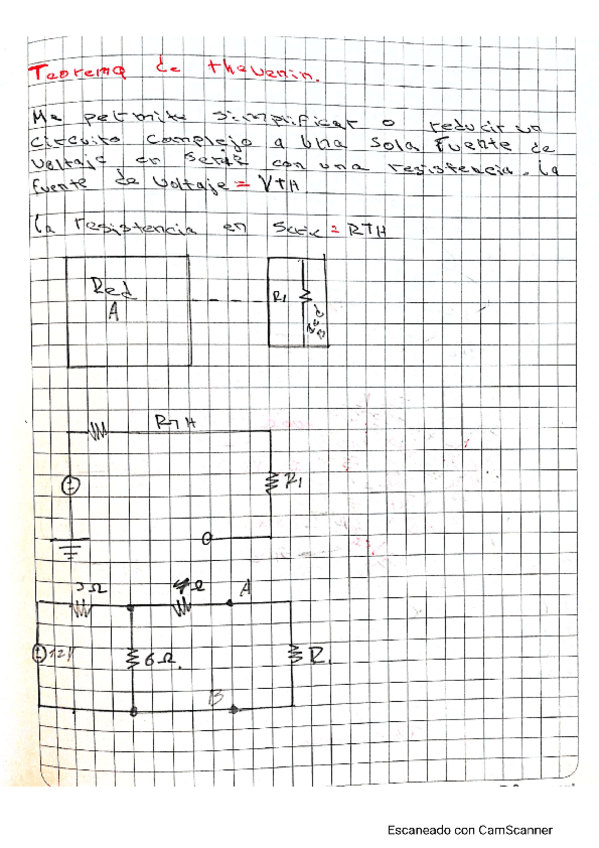 Teorema de thevenin.
Me permite simplificar o reducir un
circuito complejo a una sola fuente de
voltaje en serie con una resistencia. la
fuente de voltaje = VTH
la resistencia en serie = RTH
Red
A
R1
Red
B
RTH
R1
3Ω
4Ω
A
12V
6Ω.
R.
B
Escaneado con CamScanner